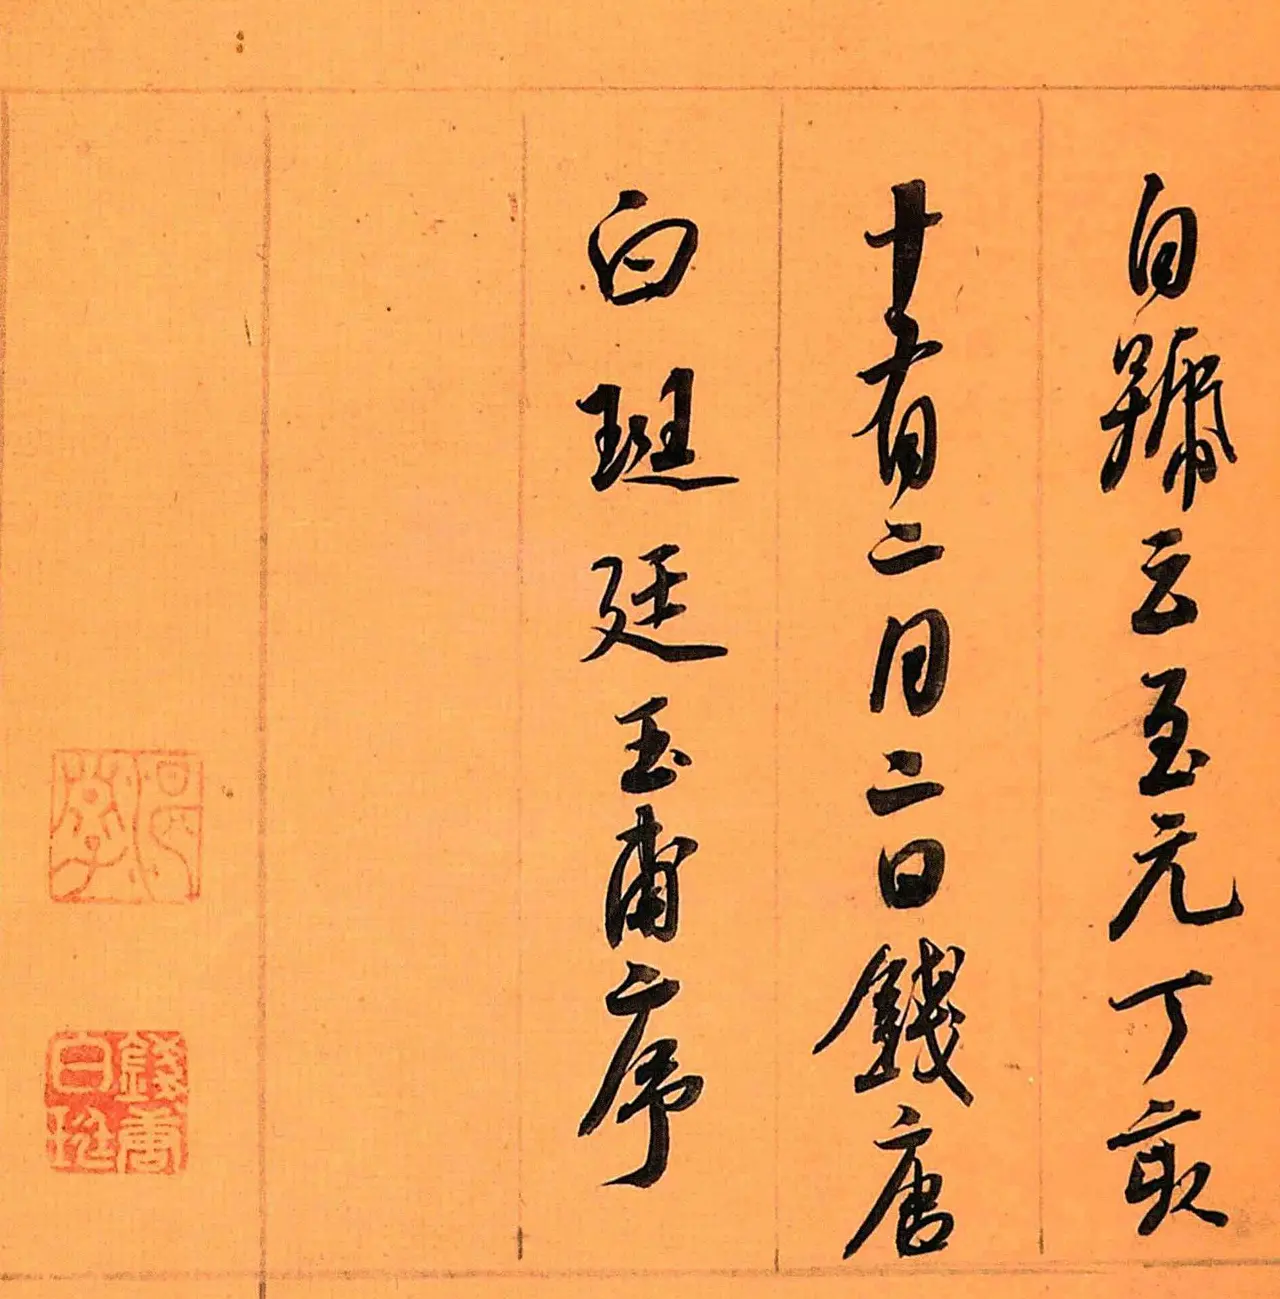 自號云至元丁亥
十有二月二日錢唐
白珽廷玉甫序
錢唐白珽